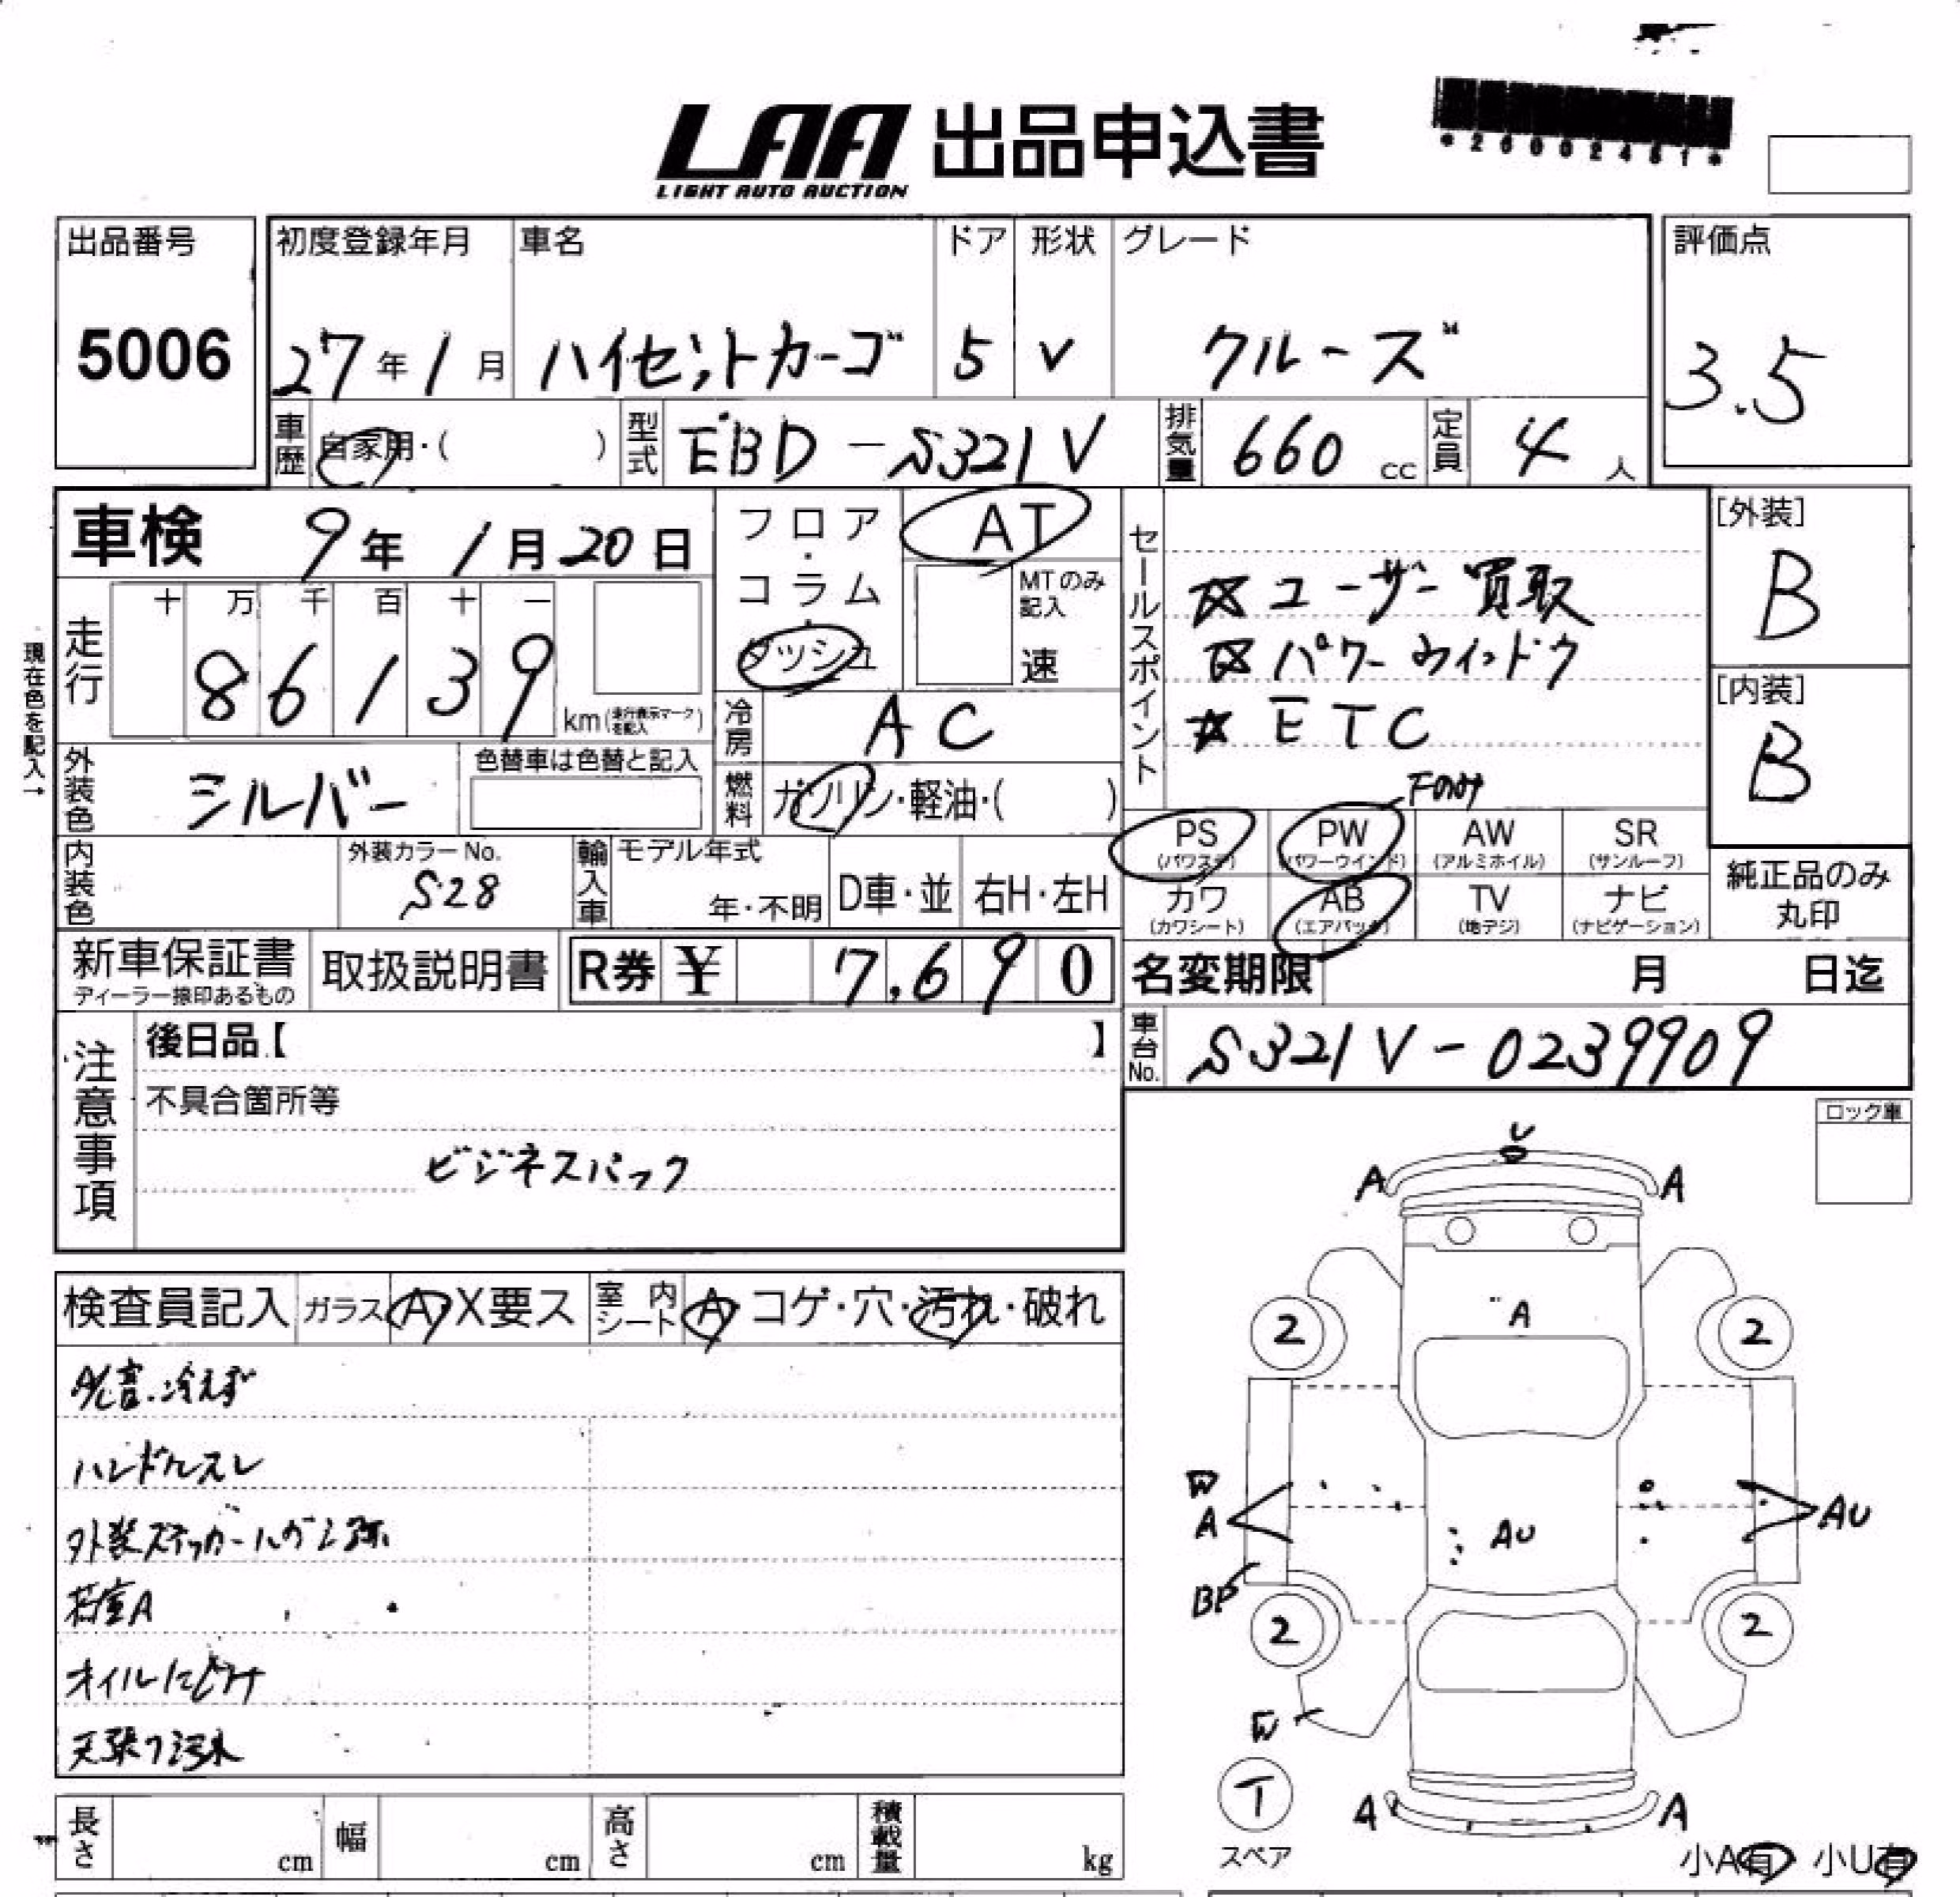 LAA 出品申込書
LIGHT AUTO AUCTION
*26002451*
出品番号 初度登録年月 車名 ドア 形状 グレード 評価点
5006 27年1月 ハイゼットカーゴ 5 V クルーズ 3.5
車歴 自家用・( ) 型式 EBD-S321V 排気量 660 cc 定員 4 人
車検 9年1月20日
フロア・コラム・ダッシュ
AT
MTのみ記入
速
セールスポイント
☆ユーザー買取
☆パワーウィンドウ
☆ETC
[外装]
B
[内装]
B
現在色を記入→
走行 十 万 千 百 十 一
86139 km(走行表示マークを記入)
冷房 AC
外装色 シルバー 色替車は色替と記入
燃料 ガソリン・軽油・( )
Fのみ
PS (パワステ) PW (パワーウインド) AW (アルミホイル) SR (サンルーフ)
カワ (カワシート) AB (エアバック) TV (地デジ) ナビ (ナビゲーション)
純正品のみ丸印
内装色 外装カラーNo. S28 輸入車 モデル年式 年・不明 D車・並 右H・左H
新車保証書 ディーラー捺印あるもの 取扱説明書 R券 ¥ 7,690
名変期限 月 日迄
車台No. S321V-0239909
注意事項
後日品【 】
不具合箇所等
ビジネスパック
ロック車
検査員記入 ガラス A・X要ス 室内シート A・コゲ・穴・汚れ・破れ
冷えず
ハンドルスレ
外装ステッカーハガシ跡
荷室A
オイルにじみ
天張り汚れ
U
A A
A
2 2
W
A
AU
AU
BP
2 2
W
T
スペア
A A
小A有 小U有
長さ cm 幅 cm 高さ cm 積載量 kg